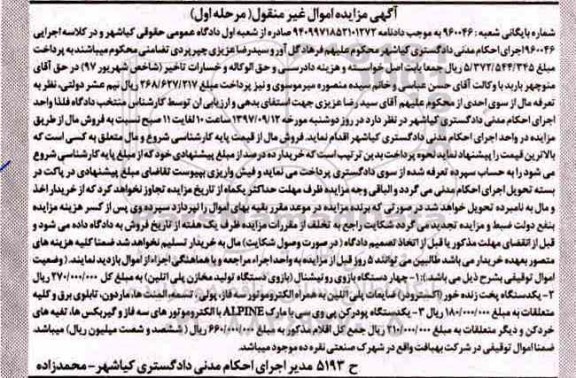 آگهی مزایده اموال غیر منقول (مرحله اول)
شماره بایگانی شعبه: ۹۶۰۰۴۶ به موجب دادنامه ۹۴۰۹۹۷۱۸۵۲۱۰۱۲۷۲ صادره از شعبه اول دادگاه عمومی حقوقی کیاشهر و در کلاسه اجرایی
۹۶۰۰۴۶ اجرای احکام مدنی دادگستری کیاشهر محکوم علیهم فرهاد گل آور و سیدرضا عزیزی چپرپردی تضامنی محکوم میباشند به پرداخت
مبلغ ۵/۳۷۲/۵۴۴/۳۴۵ ریال جمعا بابت اصل خواسته و هزینه دادرسی و حق الوکاله و خسارات تاخیر (شاخص شهریور ۹۷) در حق آقای
منوچهر باربد با وکالت آقای حسن عباسی و خانم سیده منصوره میرموسوی و نیز پرداخت مبلغ ۲۶۸/۶۲۷/۲۱۷ ریال نیم عشر دولتی، نظر به
تعرفه مال از سوی احدی از محکوم علیهم آقای سید رضا عزیزی جهت استفای بدهی و ارزیابی آن توسط کارشناس منتخب دادگاه فلذا واحد
اجرای احکام مدنی دادگستری کیاشهر در نظر دارد در روز دوشنبه مورخه ۱۳۹۷/۰۹/۱۲ ساعت ۱۰ لغایت ۱۱ صبح نسبت به فروش مال از طریق
مزایده در واحد اجرای احکام مدنی دادگستری کیاشهر اقدام نماید. فروش مال از قیمت پایه کارشناسی شروع و مال متعلق به کسی است که
بالاترین قیمت را پیشنهاد نماید نحوه پرداخت بدین ترتیب است که خریدار ده درصد از مبلغ پیشنهادی خود که از مبلغ پایه کارشناسی شروع
می شود را به حساب سپرده تعرفه شده از سوی دادگستری پرداخت می نماید و فیش واریزی بپیوست تقاضای مبلغ پیشنهادی در پاکت در
بسته تحویل اجرای احکام مدنی می گردد و الباقی وجه مزایده ظرف مهلت حداکثر یکماه از تاریخ مزایده تجاوز نخواهد کرد که از خریدار اخذ
و مال به نامبرده تحویل خواهد شد در صورتی که برنده مزایده در موعد مقرر بقیه بهای اموال را نپردازد سپرده وی پس از کسر هزینه مزایده
بنفع دولت ضبط و مزایده تجدید می گردد شکایت راجع به تخلف از مقررات مزایده ظرف یک هفته از تاریخ فروش به دادگاه داده می شود و
قبل از انقضای مهلت مذکور یا قبل از اتخاذ تصمیم دادگاه (در صورت وصول شکایت) مال به خریدار تسلیم نخواهد شد ضمنا کلیه هزینه های
متصور بعهده خریدار می باشد طالبین می توانند ۵ روز قبل از مزایده به واحد اجراء مراجعه و با هماهنگی اجراء از اموال بازدید نمایند. (وضعیت
اموال توقیفی بشرح ذیل می باشد): ۱- چهار دستگاه بازوی روتیشنال (بازوی دستگاه تولید مخازن پلی اتلین) به مبلغ کل ۲۷۰/۰۰۰/۰۰۰ ریال
۲- یکدستگاه پخت زنده خور (اکسترودر) ضایعات پلی اتلین به همراه الکتروموتور سه فاز، پولی، تسمه، المنت ها، ماردون، تابلوی برق و کلیه
متعلقات به مبلغ ۱۸۰/۰۰۰/۰۰۰ ریال ۳- یکدستگاه پودرکن پی وی سی با مارک ALPINE با الکتروموتور های سه فاز و گیربکس ها، تغیه های
خردکن و دیگر متعلقات به مبلغ ۲۱۰/۰۰۰/۰۰۰ ریال جمع کل اقلام مذکور به مبلغ ۶۶۰/۰۰۰/۰۰۰ ریال (ششصد و شصت میلیون ریال) میباشد.
ضمنا اموال توقیفی در شرکت بهبافت واقع در شهرک صنعتی نقره ده موجود میباشد.
ح ۵۱۹۳ مدیر اجرای احکام مدنی دادگستری کیاشهر - محمدزاده